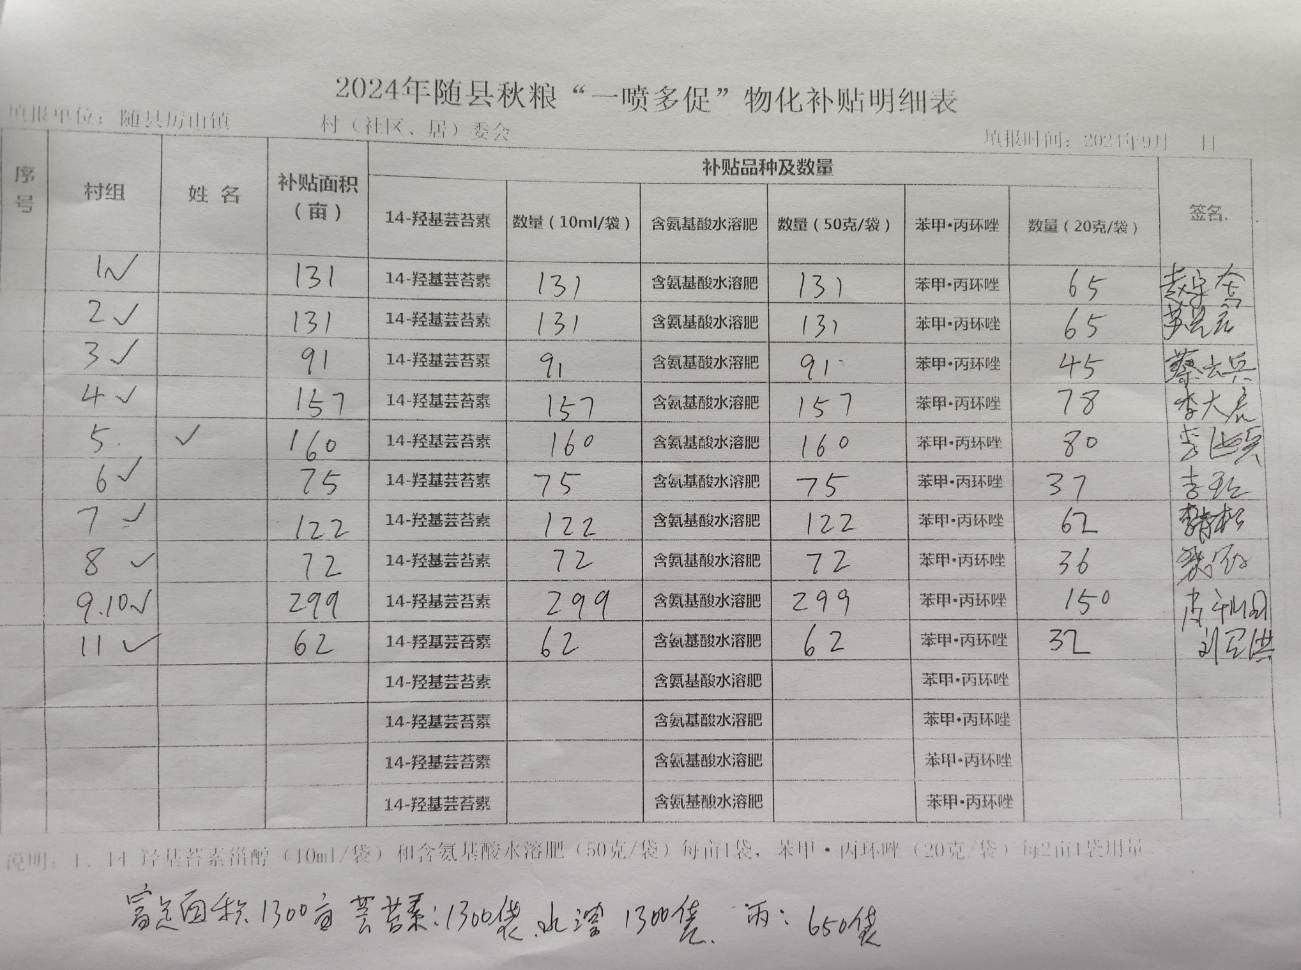 2024年随县秋粮“一喷多促”物化补贴明细表
填报单位：随县厉山镇 村（社区、居）委会 填报时间：2024年9月 日
序号 村组 姓名 补贴面积（亩） 补贴品种及数量 签名
14-羟基芸苔素 数量（10ml/袋） 含氨基酸水溶肥 数量（50克/袋） 苯甲·丙环唑 数量（20克/袋）
1 ✓ 131 14-羟基芸苔素 131 含氨基酸水溶肥 131 苯甲·丙环唑 65
2 ✓ 131 14-羟基芸苔素 131 含氨基酸水溶肥 131 苯甲·丙环唑 65
3 ✓ 91 14-羟基芸苔素 91 含氨基酸水溶肥 91 苯甲·丙环唑 45 蔡云兵
4 ✓ 157 14-羟基芸苔素 157 含氨基酸水溶肥 157 苯甲·丙环唑 78 李大
5. ✓ 160 14-羟基芸苔素 160 含氨基酸水溶肥 160 苯甲·丙环唑 80 李 兵
6 ✓ 75 14-羟基芸苔素 75 含氨基酸水溶肥 75 苯甲·丙环唑 37 李
7 ✓ 122 14-羟基芸苔素 122 含氨基酸水溶肥 122 苯甲·丙环唑 62
8 ✓ 72 14-羟基芸苔素 72 含氨基酸水溶肥 72 苯甲·丙环唑 36
9.10 ✓ 299 14-羟基芸苔素 299 含氨基酸水溶肥 299 苯甲·丙环唑 150
11 ✓ 62 14-羟基芸苔素 62 含氨基酸水溶肥 62 苯甲·丙环唑 32 刘 洪
14-羟基芸苔素 含氨基酸水溶肥 苯甲·丙环唑
14-羟基芸苔素 含氨基酸水溶肥 苯甲·丙环唑
14-羟基芸苔素 含氨基酸水溶肥 苯甲·丙环唑
14-羟基芸苔素 含氨基酸水溶肥 苯甲·丙环唑
说明：1、14-羟基苔素甾醇（10ml/袋）和含氨基酸水溶肥（50克/袋）每亩1袋，苯甲·丙环唑（20克/袋）每2亩1袋用量
面积1300亩 芸苔素：1300袋 水溶1300袋 丙：650袋